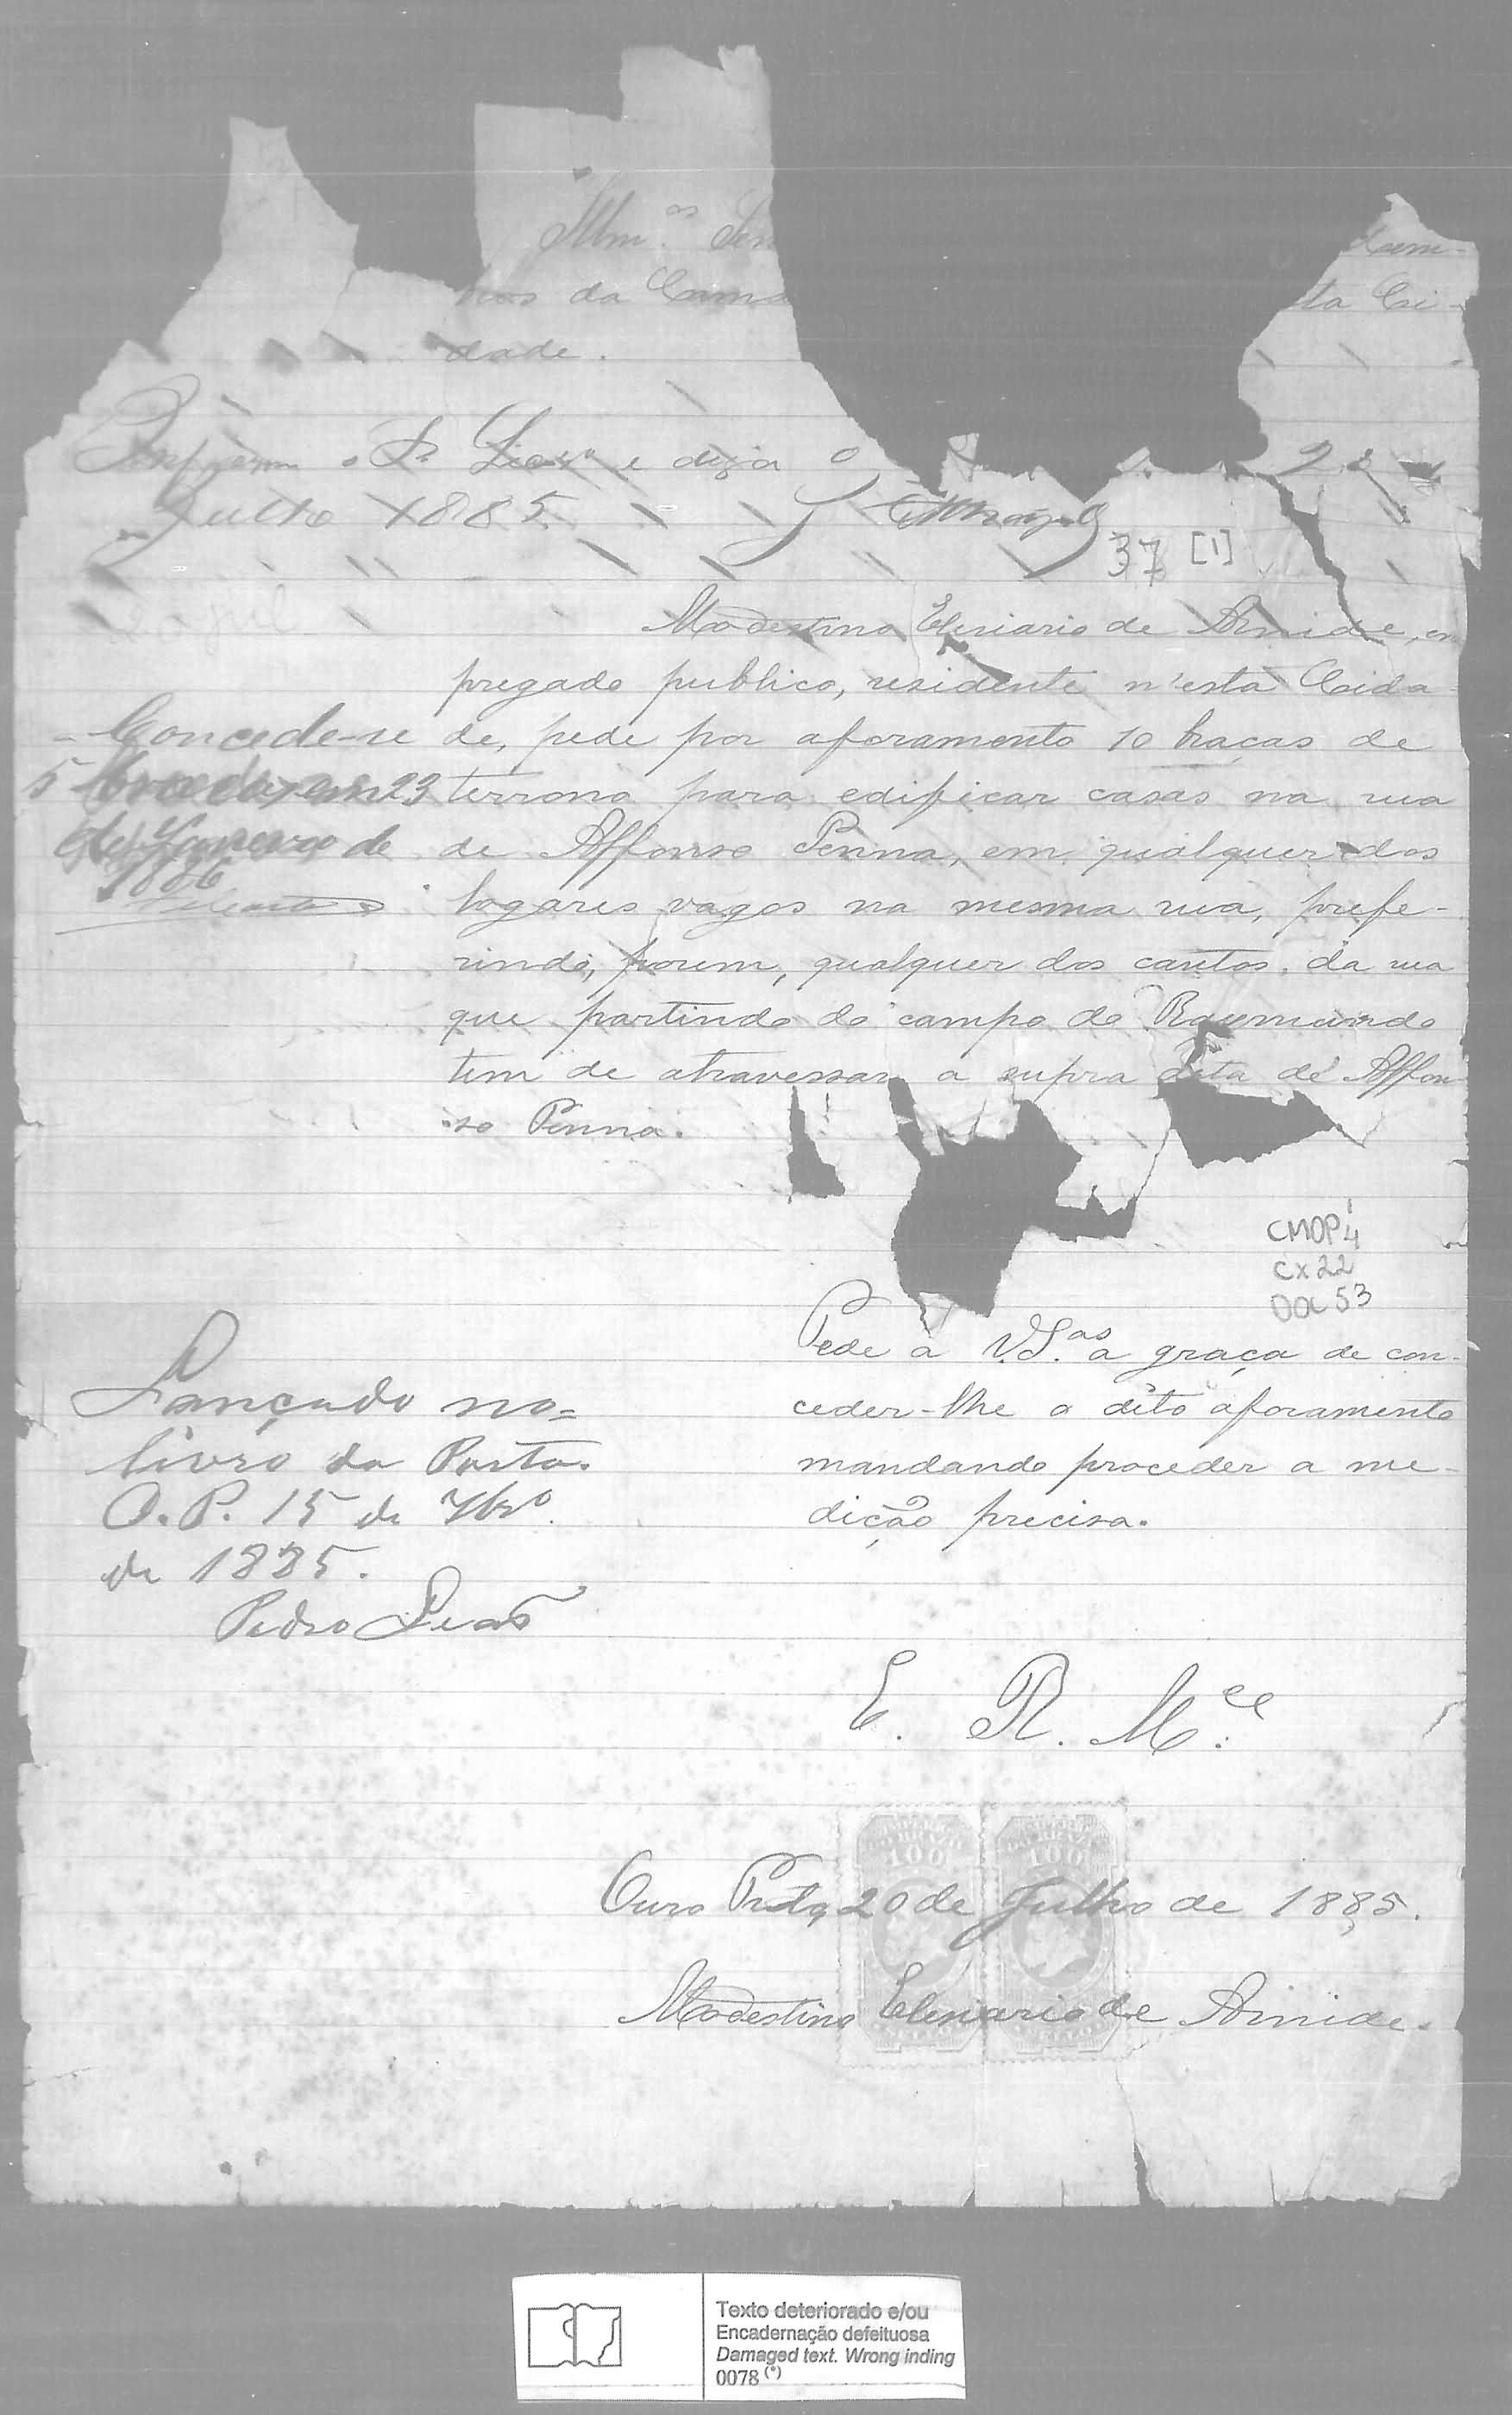 Illm.os Sen
da Cama
ta Ci-
dade.
Informem o Sr. e diga o
Julho 1885.
37 [1]
Modestino Elesiario de Arnide, em
pregado publico, residente n'esta Cida-
de, pede por aforamento 10 braças de
terreno para edificar casas na rua
de Affonso Penna, em qualquer dos
logares vagos na mesma rua, prefe-
rindo, porem, qualquer dos cantos da rua
que partindo do campo do Raymundo
tem de atravessar a supra dita de Affon
so Penna.
Concede-se
5 braças em 23
de Janeiro de
1886
CMOP 4
CX 22
DOC 53
Pede a V.S.as a graça de con-
ceder-lhe o dito aforamento
mandando proceder a me-
dição precisa.
Lançado no
livro da Porta.
O. P. 15 de 7bro.
de 1885.
Pedro Leão
E. R. M.ce
100 100
Ouro Preto, 20 de Julho de 1885.
Modestino Elesiario de Arnide.
Texto deteriorado e/ou
Encadernação defeituosa
Damaged text. Wrong inding
0078 (*)